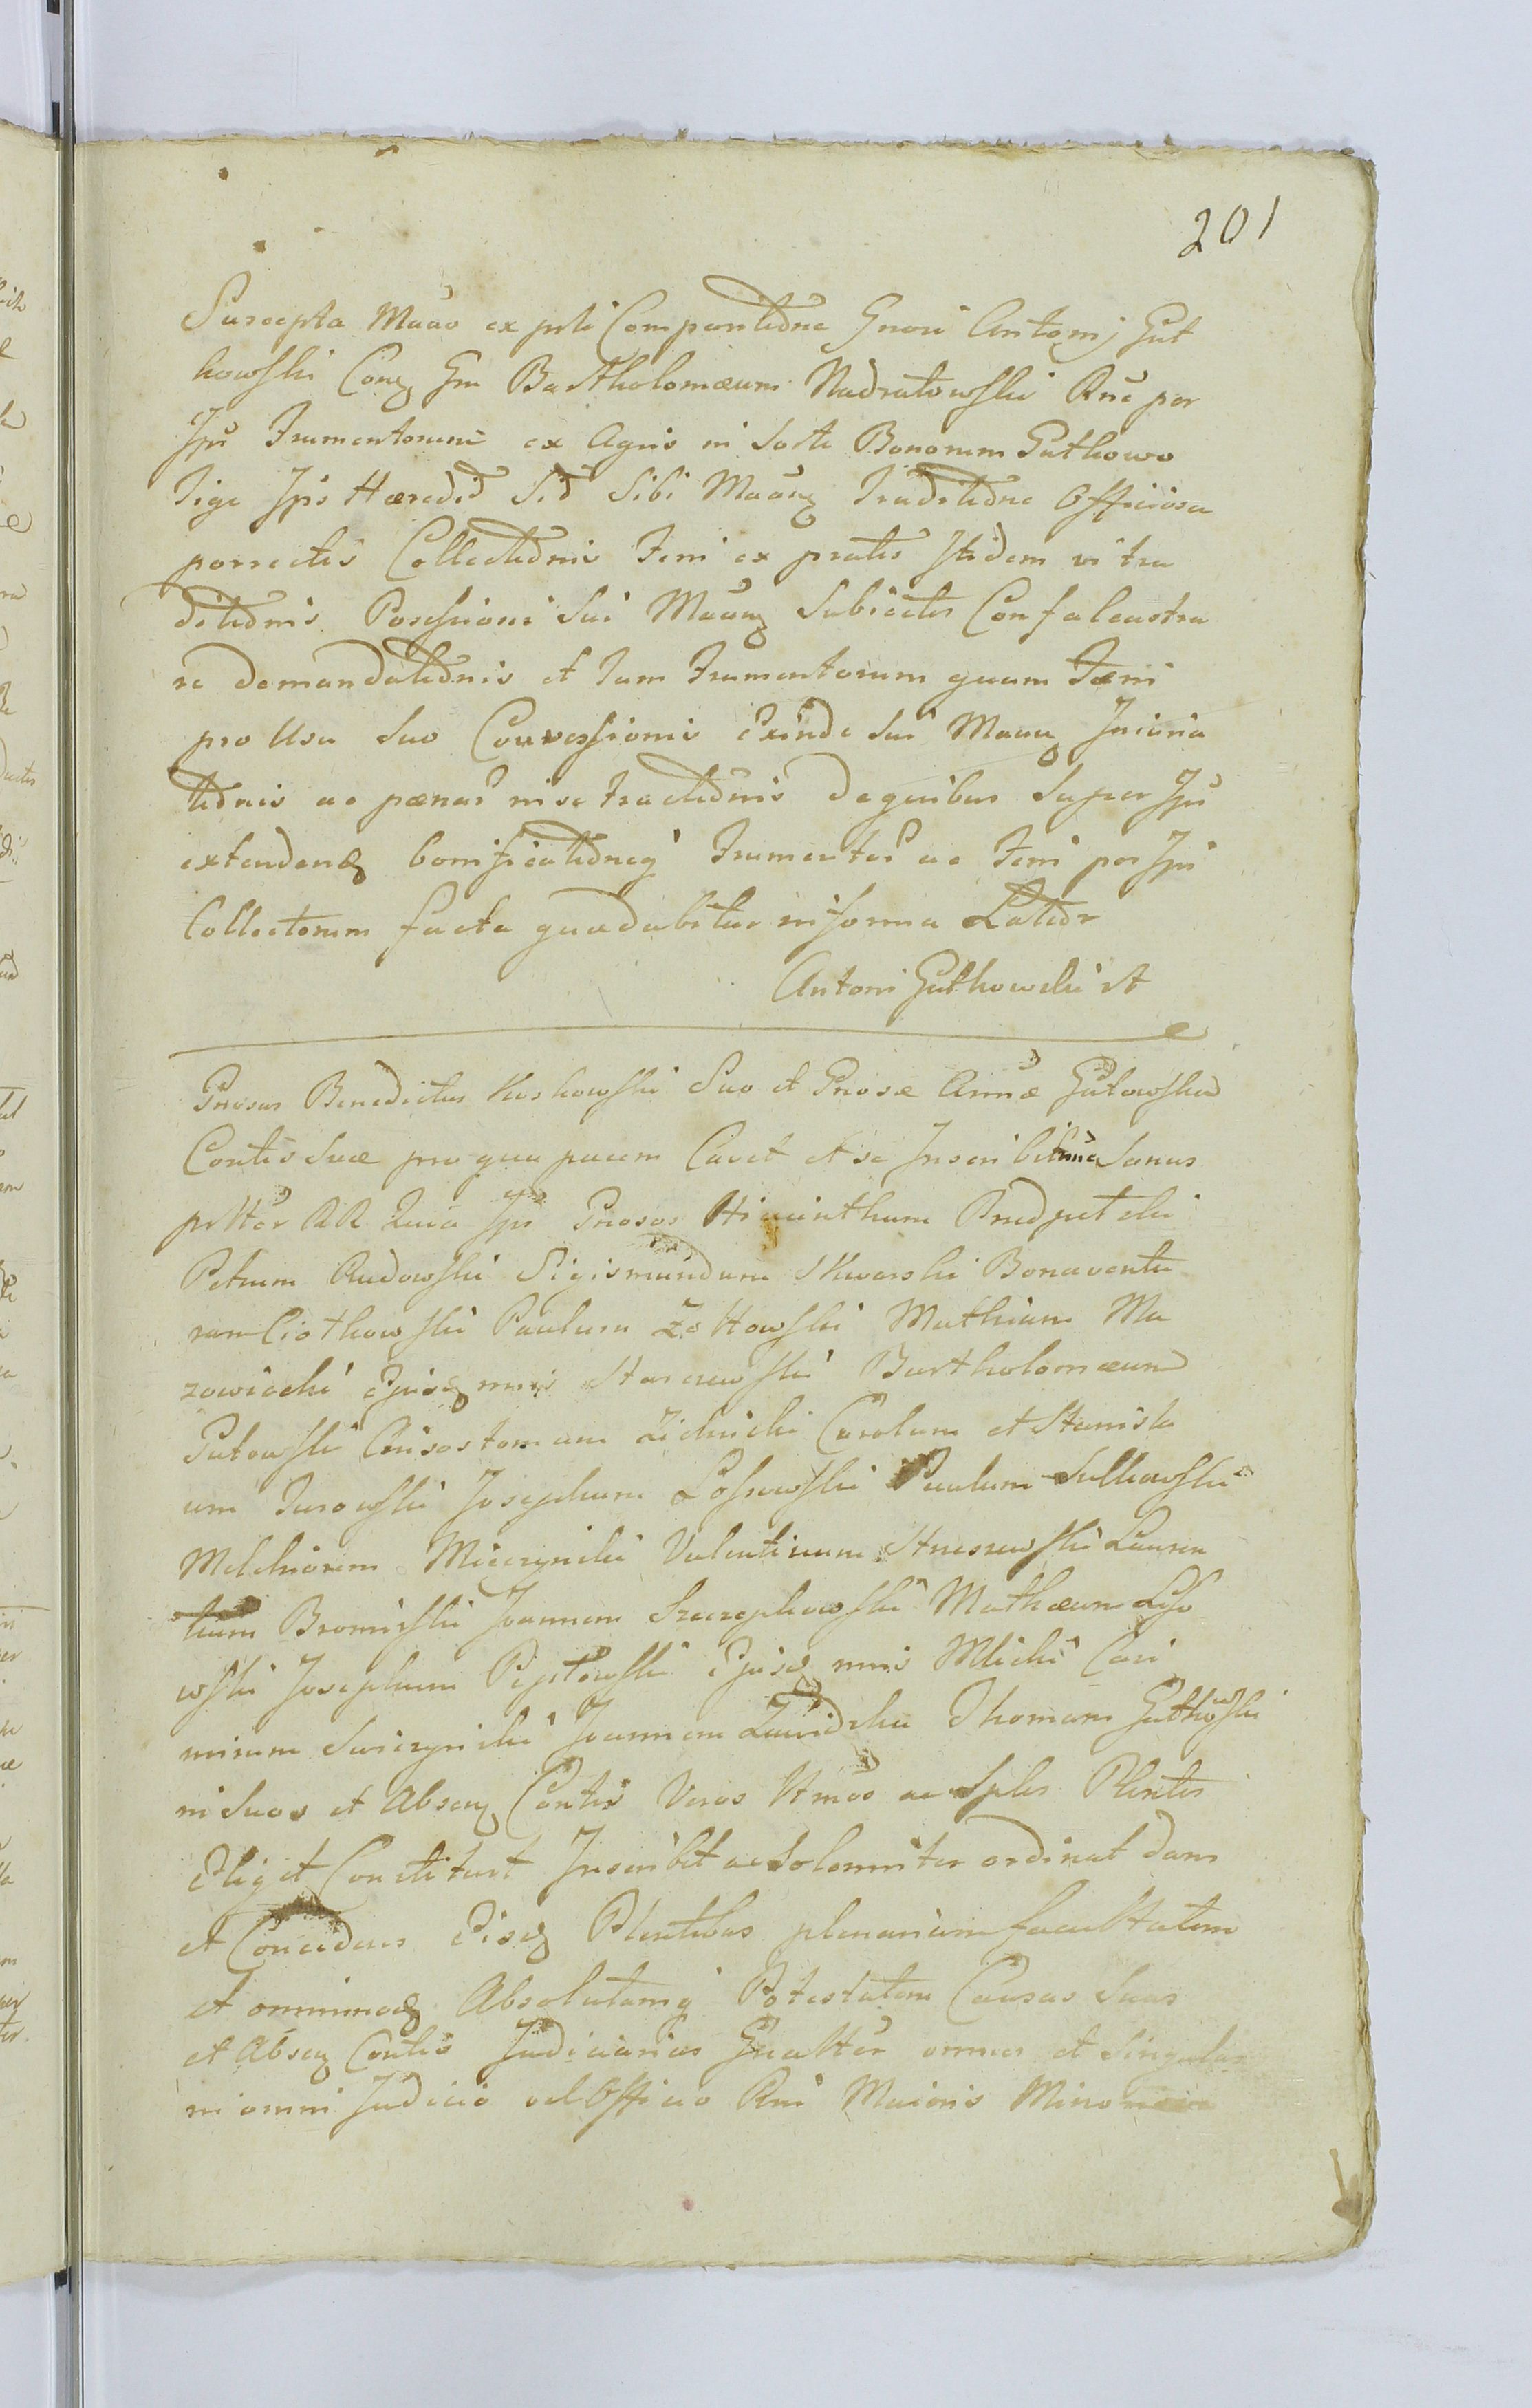 201
Suscepta Maao ex prti Comparitione Gnosi Antonij Gut
kowski Conq Gm Bartholomæum Nadratowski Rne per
Jps Frumentorum ex Agris in Sorte Bonorum Gutkowo
Jps Hæredid Sid Sibi Maaq Traditidne Officiosa
porrectis Collectidnis Feni ex pratis Itidem vi tra
ditidnis Possessioni Sui Maaq Subiectis Confalcastra
re demandatidnis et Tam Frumentorum quam Fæni
pro Usu Suo Conversionis Exinde Sui Maaq Iniuria
tidnis ac pænar in se tractidnis de quibus Super Jps
extendenq bonificatidneq Frumentor ac Feni per Jps
Collectorum facta quædabitur in forma Latidr
Antoni Gutkowski
Gnosus Benedictus Koskowski Suo et Gnosæ Annæ Gutowska
Contis Suæ pro qua pacem Cavet et se Inscribit Sanus
prtter RR Quia Jps Gnosos Hiacinthum Przedpełski
Petrum Rudowski Sigismundum Skwarski Bonaventu
ram Ciołkowski Paulum Żółtowski Mathiam Ma
zowiecki Ejusq nnis Starczewski Bartholomæum
Gutowski Crisostomum Zieliński Carolum et Stanisla
um Turowski Josephum Lossowski Paulum Sulkowski
Melchiorem Mieczynski Valentinum Laurem
tium Bromirski Joannem Szczepkowski Mathæum Liso
wski Josephum Peptowski Ejusq nnis Mlicki Casi
mirum Swierzynski Joannem Zawidzki Thomam Gutkowski
ni Suos et Absenq Contis Veros Ltmos ac Splis Plentes
Eligit Constituit Inscribit ac Solemniter ordinat dans
et Concedens Eisq Plentibus plenariam facultatem
et omnimodq Absolutamq Potestatem Causas Suas
et Absenq Contis Judiciarias Gnaltter omnes et Singulas
in omni Judicio vel Officio Rni Maioris